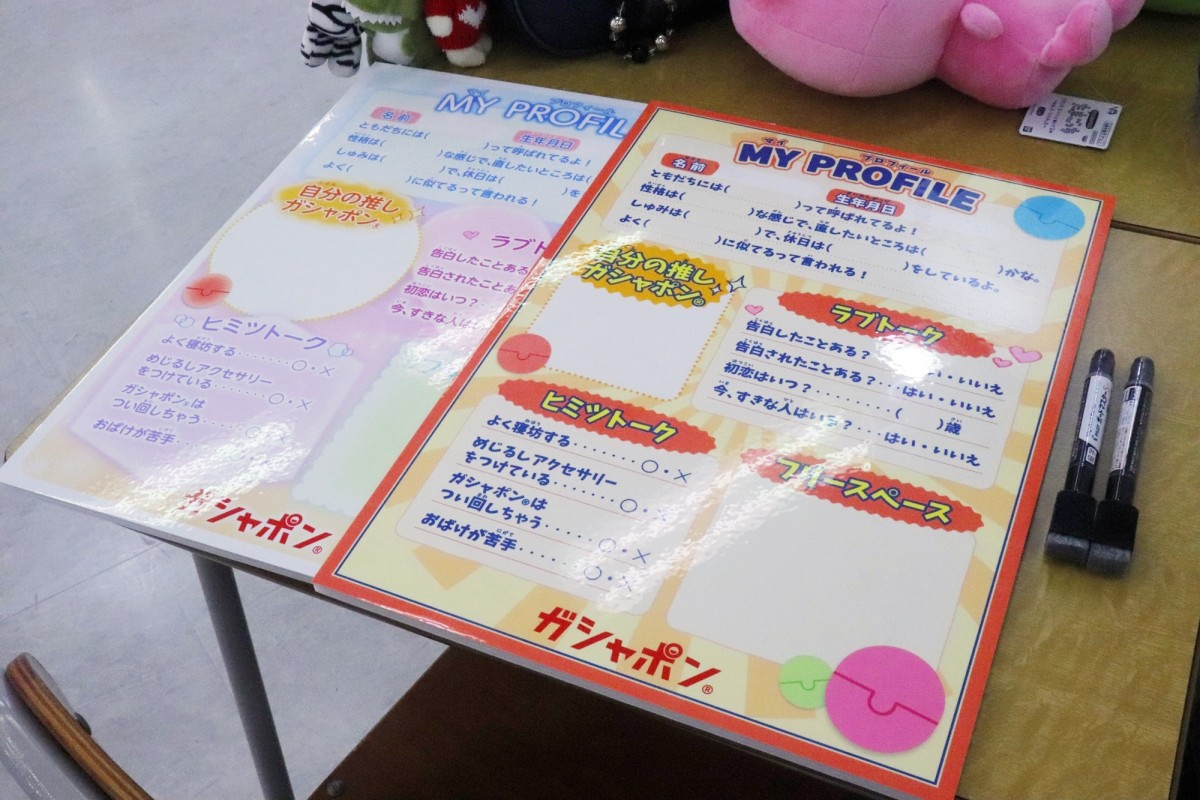 マイ プロフィール
MY PROFIL
名前
生年月日
ともだちには( )って呼ばれてるよ!
性格は( )な感じで、直したいところは(
しゅみは( )で、休日は( )を
よく( )に似てるって言われる!
自分の推し
ガシャポン®
ラブト
告白したことある
告白されたことあ
初恋はいつ?
今、すきな人は
ヒミツトーク
よく寝坊する........○・×
めじるしアクセサリー
をつけている........○・×
ガシャポン®は
つい回しちゃう
おばけが苦手
ガシャポン®
マイ プロフィール
MY PROFILE
名前
生年月日
ともだちには( )って呼ばれてるよ!
性格は( )な感じで、直したいところは( )かな。
しゅみは( )で、休日は( )をしているよ。
よく( )に似てるって言われる!
自分の推し
ガシャポン®
ラブトーク
告白したことある?・いいえ
告白されたことある?...はい・いいえ
初恋はいつ?..........( )歳
今、すきな人はいる?...はい・いいえ
ヒミツトーク
よく寝坊する........○・×
めじるしアクセサリー
をつけている........○・×
ガシャポン®は
つい回しちゃう......○・×
おばけが苦手........○・×
フリースペース
ガシャポン®